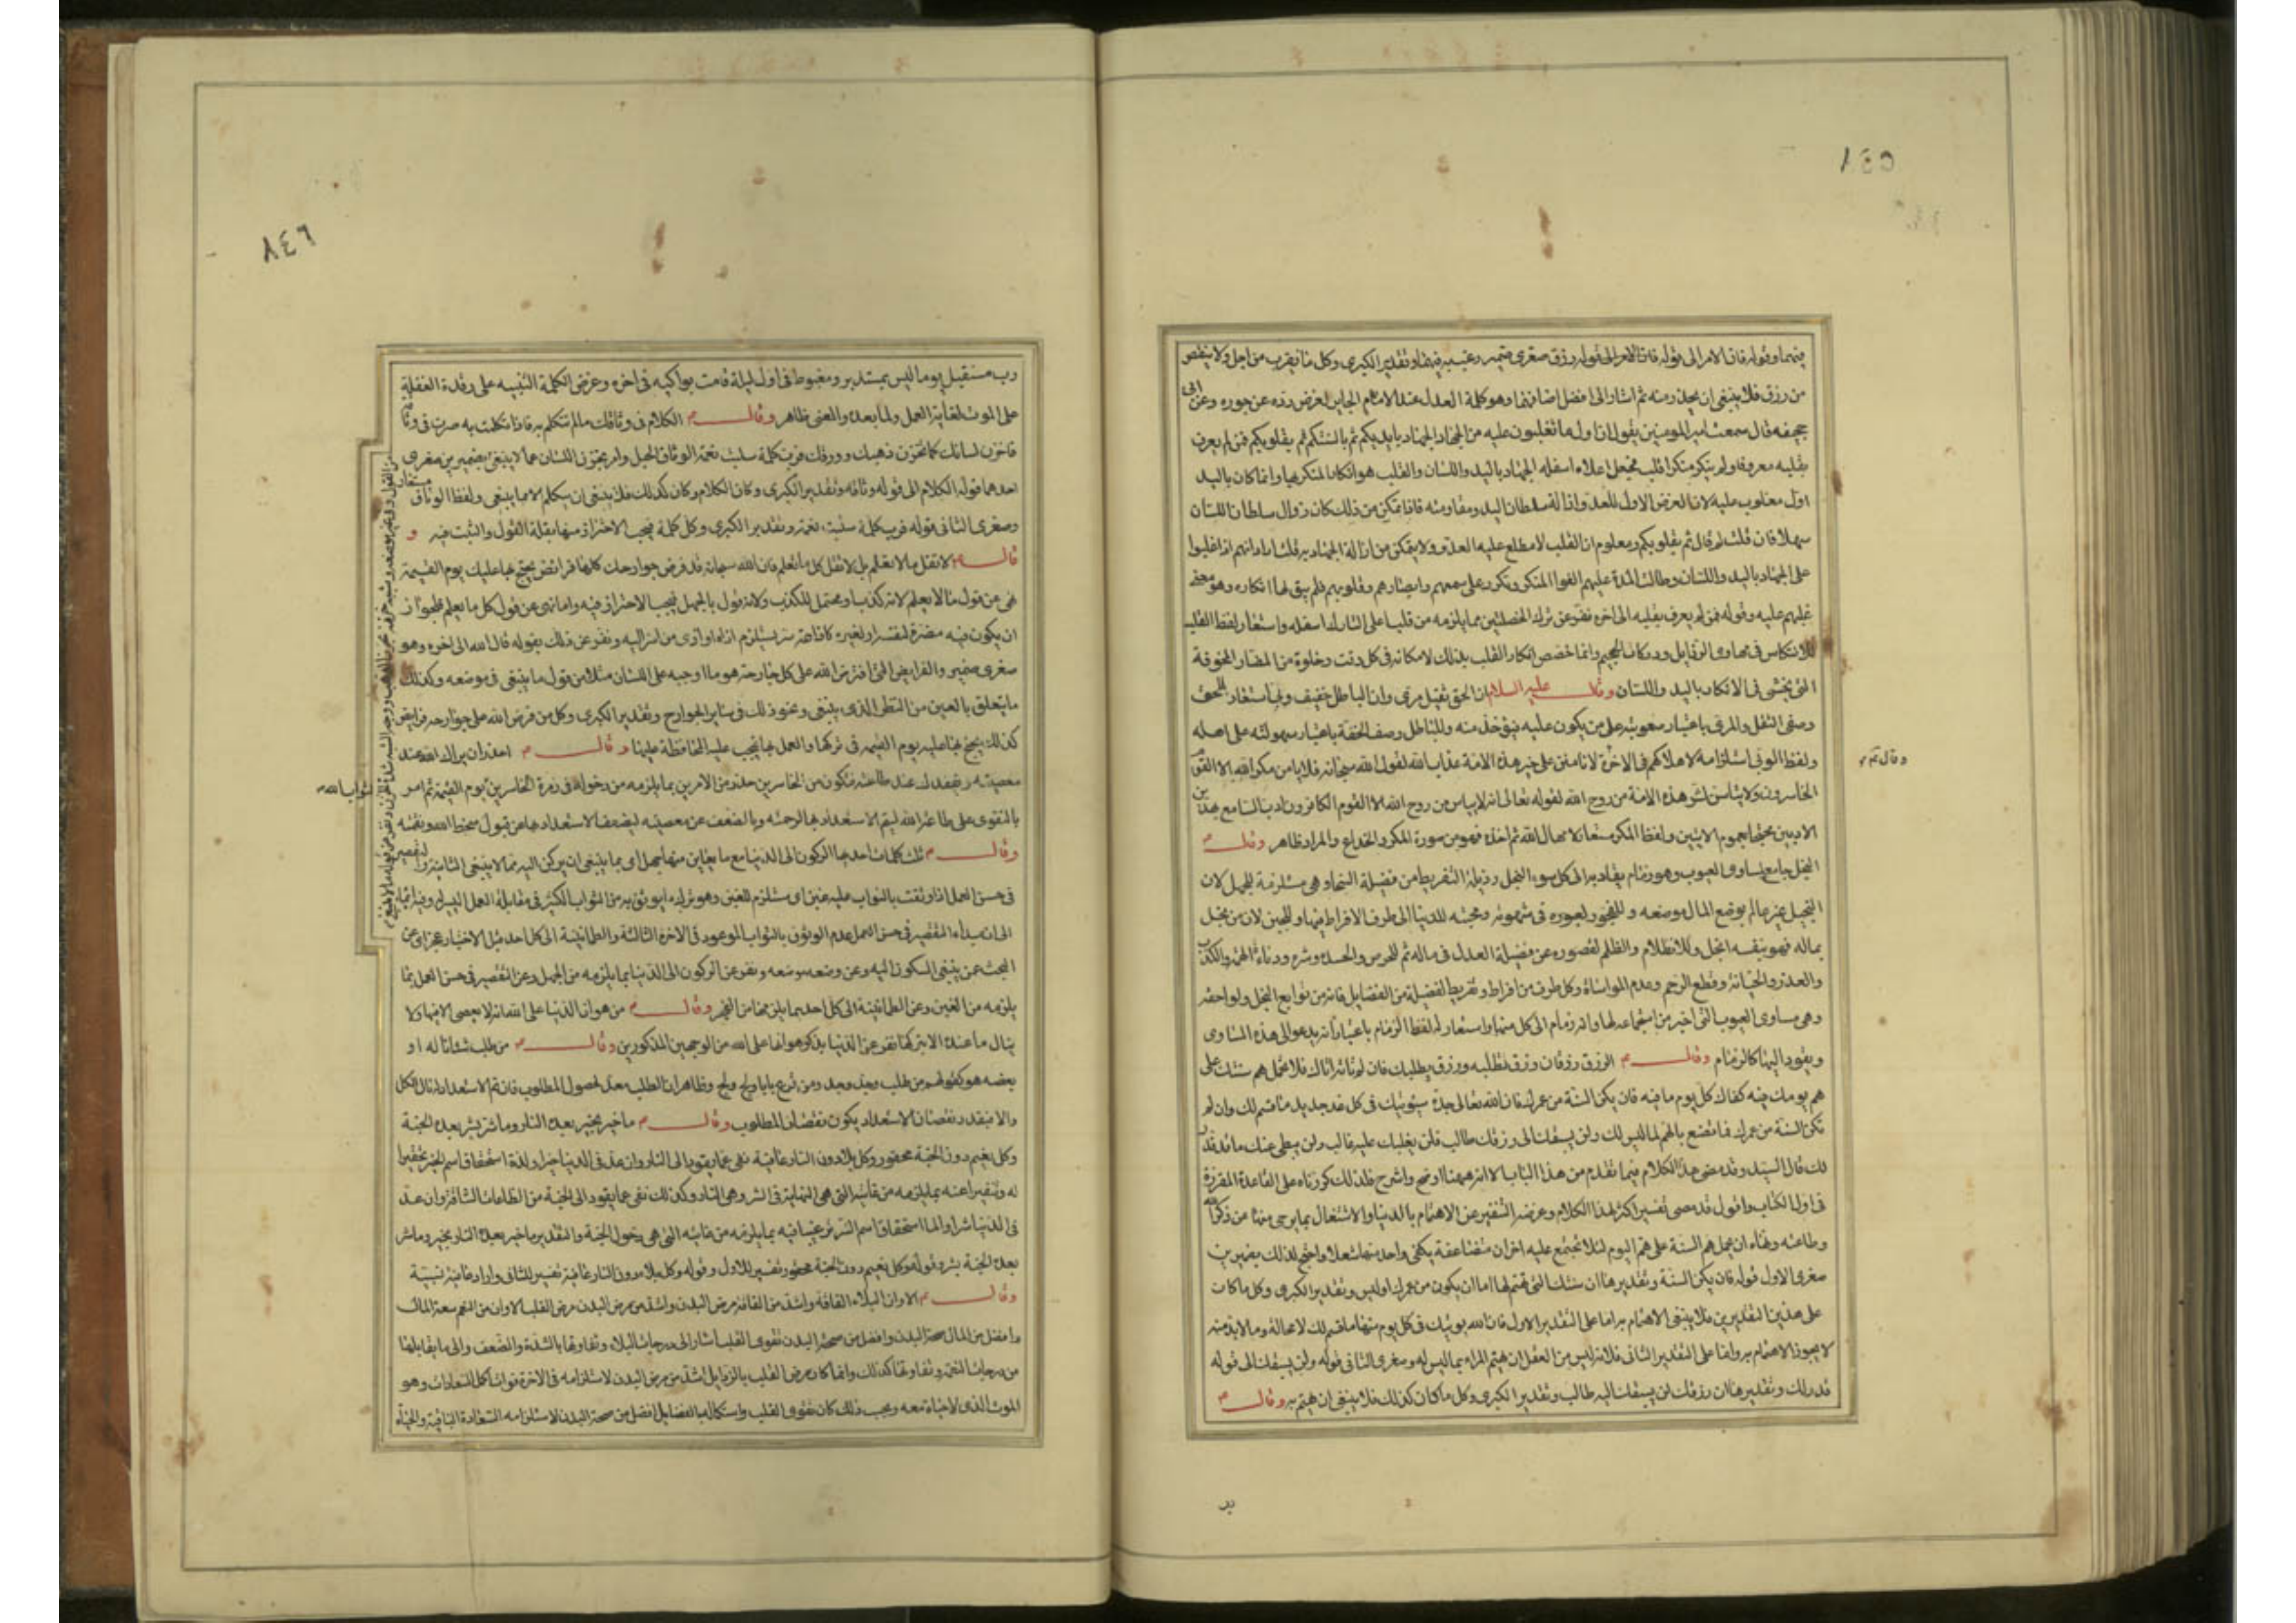 ٨٤٥
فيهما وقوله فان الامر الى قوله رزق صغرى ضمير رغب به فيهما وتقدير الكبرى وكل ما لا يقرب من اجل ولا ينقص
من رزق فلا ينبغي ان يحذر منه ثم اشار الى افضل اصنافهما وهو كلمة العدل عند الامام الجاير لغرض رده عن جوره وعن ابي
جحيفه قال سمعت امير المومنين يقول ان اول ما تغلبون عليه من الجهاد الجهاد بايديكم ثم بالسنتكم ثم بقلوبكم فمن لم يعرف
بقلبه معروفا ولم ينكر منكرا قلب فجعل اعلاه اسفله الجهاد باليد واللسان والقلب هو انكار المنكر بها وانما كان باليد
اول مغلوب عليه لان الغرض الاول للعدو ازالة سلطان اليد ومقاومته فاذا تمكن من ذلك كان زوال سلطان اللسان
سهلا فان قلت لم قال ثم بقلوبكم ومعلوم ان القلب لا مطلع عليه العدو ولا يتمكن من ازالة الجهاد به قلت اراد انهم اذا غلبوا
على الجهاد باليد واللسان وطالت المدة عليهم الفوا المنكر وتكرر على سمعهم وابصارهم وقلوبهم فلم يبق لها انكاره وهو معنى
غلبهم عليه وقوله فمن لم يعرف بقلبه الى اخره نفر عن ترك الخصلتين مما يلزمه من قلب اعلى التارك اسفله واستعار لفظ القلب
للانتكاس في مهاوى الرذايل ودركات الجحيم وانما خصص انكار القلب بذلك لامكانه في كل وقت وخلوه من المضار المخوفة
التي يخشى في الانكار باليد واللسان وقال عليه السلام ان الحق ثقيل مرى وان الباطل خفيف وبى استعار للحق
وصفى الثقل والمرى باعتبار صعوبته على من يكون عليه فيؤخذ منه وللباطل وصف الخفة باعتبار سهولته على اهله
ولفظ الوبى لاستلزامه لاهلاكهم في الاخرة لا تامنن على خير هذه الامة عذاب الله لقول الله سبحانه فلا يامن مكر الله الا القوم
وقال ع
الخاسرون ولا تياسن لشر هذه الامة من روح الله لقوله تعالى انه لا يياس من روح الله الا القوم الكافرون ادب السامع هذين
الادبين محتجا بعموم الايتين ولفظ المكر مستعار لامهال الله ثم اخذه فهو من صورة المكر والخداع والمراد ظاهر وقال ع
البخل جامع لمساوى العيوب وهو زمام يقاد به الى كل سوء البخل رذيلة التفريط من فضيلة السخا وهي مستلزمة للجهل لان
البخيل غير عالم بوضع المال موضعه وللفجور لعبوره في شهوته ومحبته للدنيا الى طرف الافراط فيها وللجبن لان من بخل
بماله فهو بنفسه ابخل وللانظلام والظلم لقصوره عن فضيلة العدل في ماله ثم للحرص والحسد وشره ودناءة الهمة والكذب
والغدر والخيانة وقطع الرحم وعدم المواساة وكل طرف من افراط وتفريط لفضيلة من الفضايل فانه من توابع البخل ولواحقه
وهي مساوى العيوب التي اخبر من اجتماعه لها وانه زمام الى كل منها واستعار له لفظ الزمام باعتبار انه يدعو الى هذه المساوى
ويقود اليها كالزمام وقال ع الرزق رزقان رزق تطلبه ورزق يطلبك فان لم تاته اتاك فلا تحمل هم سنتك على
هم يومك فيه كفاك كل يوم ما فيه فان يكن السنة من عمرك فان الله تعالى جده سيؤتيك في كل غد جديد ما قسم لك وان لم
تكن السنة من عمرك فما تصنع بالهم لما ليس لك ولن يسبقك الى رزقك طالب فلن يغلبك عليه غالب ولن يبطى عنك ما قد قدر
لك قال السيد وقد مضى هذا الكلام فيما تقدم من هذا الباب الا انه ههنا اوضح واشرح فلذلك كررناه على القاعدة المقررة
في اول الكتاب واقول قد مضى تفسير اكثر هذا الكلام وغرضه التنفير عن الاهتمام بالدنيا والاشتغال بما يرجى منها عن ذكر الله
وطاعته ونهاه ان يحمل هم السنة على هم اليوم لئلا تجتمع عليه احزان متضاعفة يكفى واحد منها شغلا واحتج لذلك بضميرين
صغرى الاول قوله فان يكن السنة وتقديرها ان سنتك التي تهتم لها اما ان يكون من عمرك او ليس وتقدير الكبرى وكل ما كان
على هذين التقديرين فلا ينبغي الاهتمام به اما على التقدير الاول فان الله يؤتيك في كل يوم منها ما قسم لك لا محالة وما لا بد منه
لا يجوز الاهتمام به واما على التقدير الثاني فلانه ليس من العقل ان يهتم المرء بما ليس له وصغرى الثاني قوله ولن يسبقك الى قوله
قدر لك وتقديرها ان رزقك لن يسبقك اليه طالب وتقدير الكبرى وكل ما كان كذلك فلا ينبغي ان يهتم به وقال ع
رب
٨٤٦
رب مستقبل يوما ليس بمستدبره ومغبوط في اول ليلة قامت بواكيه في اخره وغرض الكلمة التنبيه على رقدة الغفلة
على الموت لغاية العمل ولما بعده والمعنى ظاهر وقال ع الكلام في وثاقك ما لم تتكلم به فاذا تكلمت به صرت في وثاقه
فاخزن لسانك كما تخزن ذهبك وورقك فرب كلمة سلبت نعمة الوثاق الحبل وامر بخزن اللسان عما لا ينبغي بضميرين صغرى
احدهما قوله الكلام الى قوله وثاقه وتقدير الكبرى وكان الكلام وكان كذلك فلا ينبغي ان يتكلم الا مما ينبغي ولفظ الوثاق مستعار
وصغرى الثاني قوله فرب كلمة سلبت نعمة وتقدير الكبرى وكل كلمة فيجب الاحتراز منها بقلة القول والتثبت فيه و
قال ع لا تقل ما لا تعلم بل لا تقل كل ما تعلم فان الله سبحانه قد فرض جوارحك كلها فرائض يحتج بها عليك يوم القيمة
نهى عن قول ما لا يعلم لانه كذب او محتمل للكذب ولانه قول بالجهل فيجب الاحتراز فيه واما نهى عن قول كل ما يعلم فلجواز
ان يكون فيه مضرة لنفسه او لغيره كاذاعة سر يستلزم اذاه او اذى من اسر اليه ونفر عن ذلك بقوله فان الله الى اخره وهو
صغرى ضمير والفرايض التي افترض الله على كل جارحة هو ما اوجبه على اللسان مثلا من قول ما ينبغي في موضعه وكذلك
ما يتعلق بالعين من النظر الذي ينبغي ونحو ذلك في ساير الجوارح وتقدير الكبرى وكل من فرض الله على جوارحه فرايض
كذلك يحتج بها عليه يوم القيمة في تركها والعمل بها فيجب عليه المحافظة عليها وقال ع احذر ان يراك الله عند
معصيته ويفقدك عند طاعته فتكون من الخاسرين حذر من الامرين بما يلزمه من دخوله في زمرة الخاسرين يوم القيمة ثم امر
ثواب الله
بالتقوى على طاعة الله ليتم الاستعداد بها لرحمته وبالضعف عن معصيته ليضعف الاستعداد بها عن قبول سخط الله ونقمته
وقال ع ثلث كلمات احدها الركون الى الدنيا مع ما يعاين منها جهل اى بما ينبغي ان يركن اليه مما لا ينبغي الثانية والتقصير
في حسن العمل اذا وثقت بالثواب عليه غبن اى مستلزم للغبن وهو ترك ما يوثق به من الثواب الكثير في مقابلة العمل اليسير وفيه ايماء
الى ان مبداء التقصير في حسن العمل عدم الوثوق بالثواب الموعود في الاخرة الثالثة والطمانينة الى كل احد قبل الاختبار عجز اى عن
البحث عمن ينبغي السكون اليه وعن وضعه موضعه ونفر عن الركون الى الدنيا بما يلزمه من الجهل وعن التقصير في حسن العمل بما
يلزمه من الغبن وعن الطمانينة الى كل احد بما يلزمها من العجز وقال ع من هوان الدنيا على الله انه لا يعصى الا فيها ولا
ينال ما عنده الا بتركها نفر عن الدنيا بذكر هوانها على الله من الوجهين المذكورين وقال ع من طلب شيئا ناله او
بعضه هو كقولهم من طلب وجد وجد ومن قرع بابا ولج ولج وظاهر ان الطلب معد لحصول المطلوب فان تم الاستعداد له نال الكل
والا فبقدر نقصان الاستعداد يكون نقصان المطلوب وقال ع ما خير بخير بعده النار وما شر بشر بعده الجنة
وكل نعيم دون الجنة محقور وكل بلاء دون النار عافية نفى عما يقود الى النار وان عد في الدنيا خيرا ولذة استحقاق اسم الخير تحقيرا
له وتنفيرا عنه بما يلزمه من غايته التي هي النهاية في الشر وهي النار وكذلك نفى عما يقود الى الجنة من الطاعات الشاقة وان عد
في الدنيا شرا والما استحقاق اسم الشر ترغيبا فيه بما يلزمه من غايته التي هي دخول الجنة والتقدير ما خير بعده النار بخير وما شر
بعده الجنة بشر وقوله وكل نعيم دون الجنة محقور تفسير للاول وقوله وكل بلاء دون النار عافية تفسير للثاني واراد عافية نسبية
وقال ع الا وان البلاء الفاقة واشد من الفاقة مرض البدن واشد من مرض البدن مرض القلب الا وان من النعم سعة المال
وافضل من المال صحة البدن وافضل من صحة البدن تقوى القلب اشار الى درجات البلاء وتفاوتها بالشدة والضعف والى ما يقابلها
من درجات النعم وتفاوتها كذلك وانما كان مرض القلب بالرذايل اشد من مرض البدن لاستلزامه في الاخرة فوات اكمل السعادات وهو
الموت الذي لا حياة معه وبحسب ذلك كان تقوى القلب واستكماله بالفضايل افضل من صحة البدن لاستلزامه السعادة الباقية والحياة